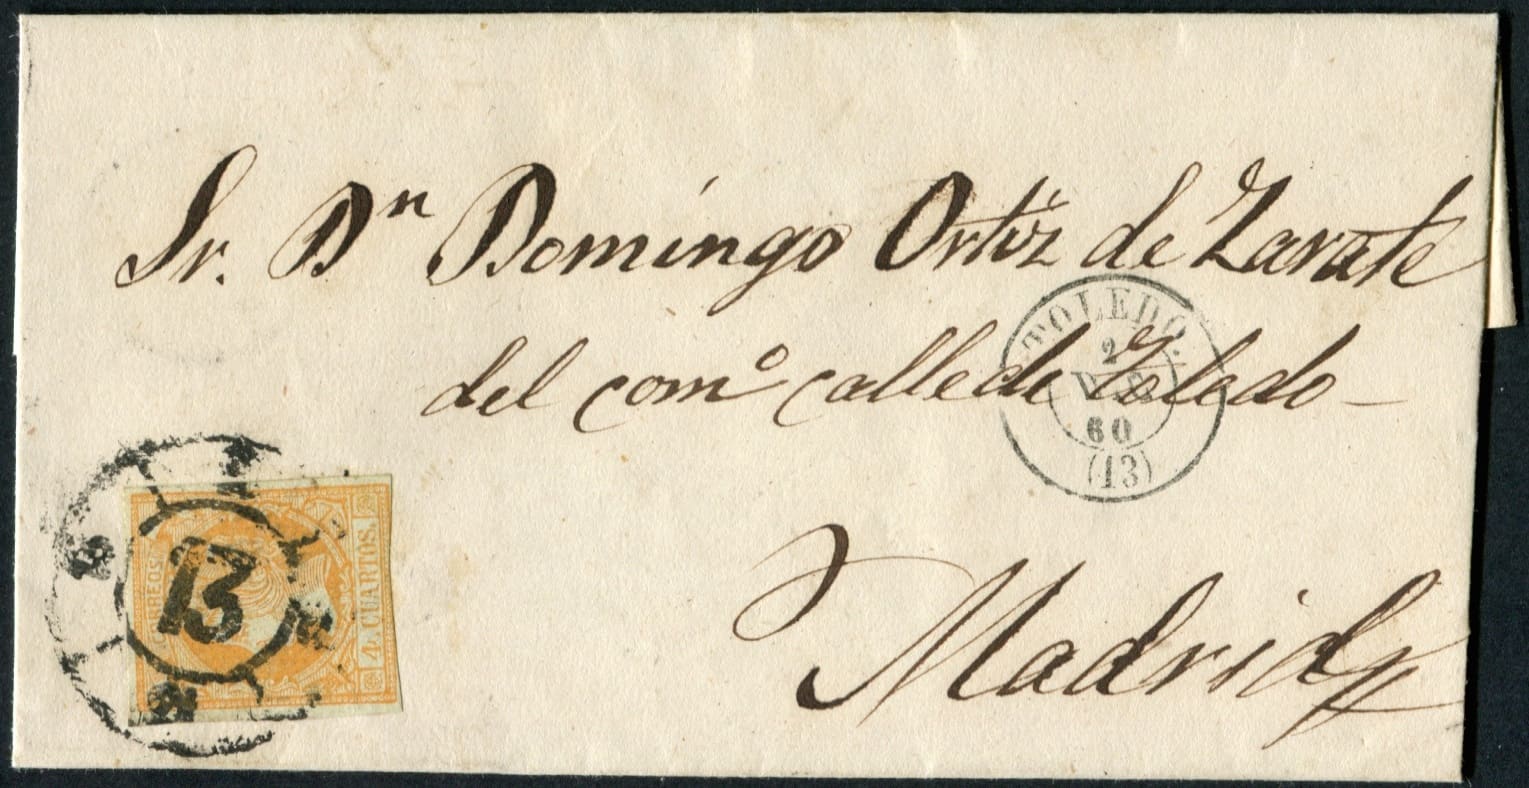 Sr. Dn Domingo Ortiz de Zarate
del como calle de Toledo
Madrid
TOLEDO.
2
60
(13)
13
CORREOS
4 CUARTOS.